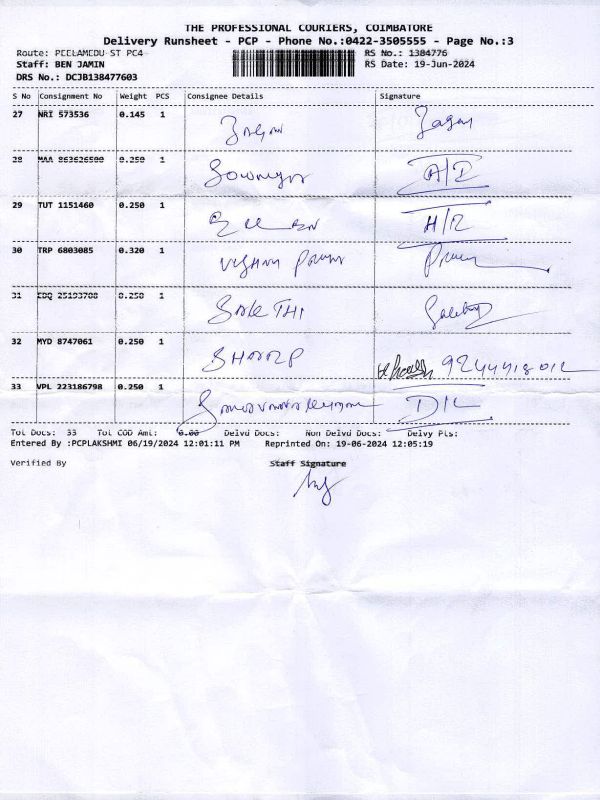 THE PROFESSIONAL COURIERS, COIMBATORE
Delivery Runsheet - PCP - Phone No.:0422-3505555 - Page No.:3
Route: PEELAMEDU ST PC4 RS No.: 1384776
Staff: BEN JAMIN RS Date: 19-Jun-2024
DRS No.: DCJB138477603
S No Consignment No Weight PCS Consignee Details Signature
27 NRI 573536 0.145 1
28 MAA 863626500 0.250 1 Sowmya A/I
29 TUT 1151460 0.250 1 H/R
30 TRP 6803085 0.320 1 VISHNU
31 0.250 1 SAKTHI
32 MYD 8747061 0.250 1 SHARP
33 VPL 223186798 0.250 1 D/L
Tot Docs: 33 Tot COD Amt: 0.00 Delvd Docs: Non Delvd Docs: Delvy Pts:
Entered By :PCPLAKSHMI 06/19/2024 12:01:11 PM Reprinted On: 19-06-2024 12:05:19
Verified By Staff Signature